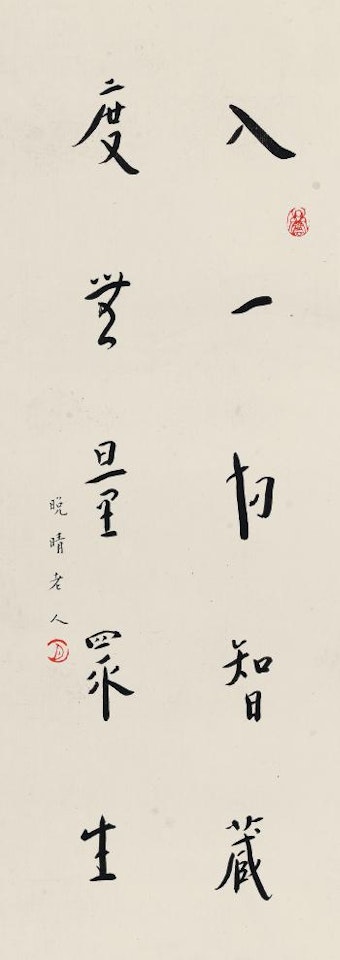 入一切智藏
度無量眾生
晚晴老人